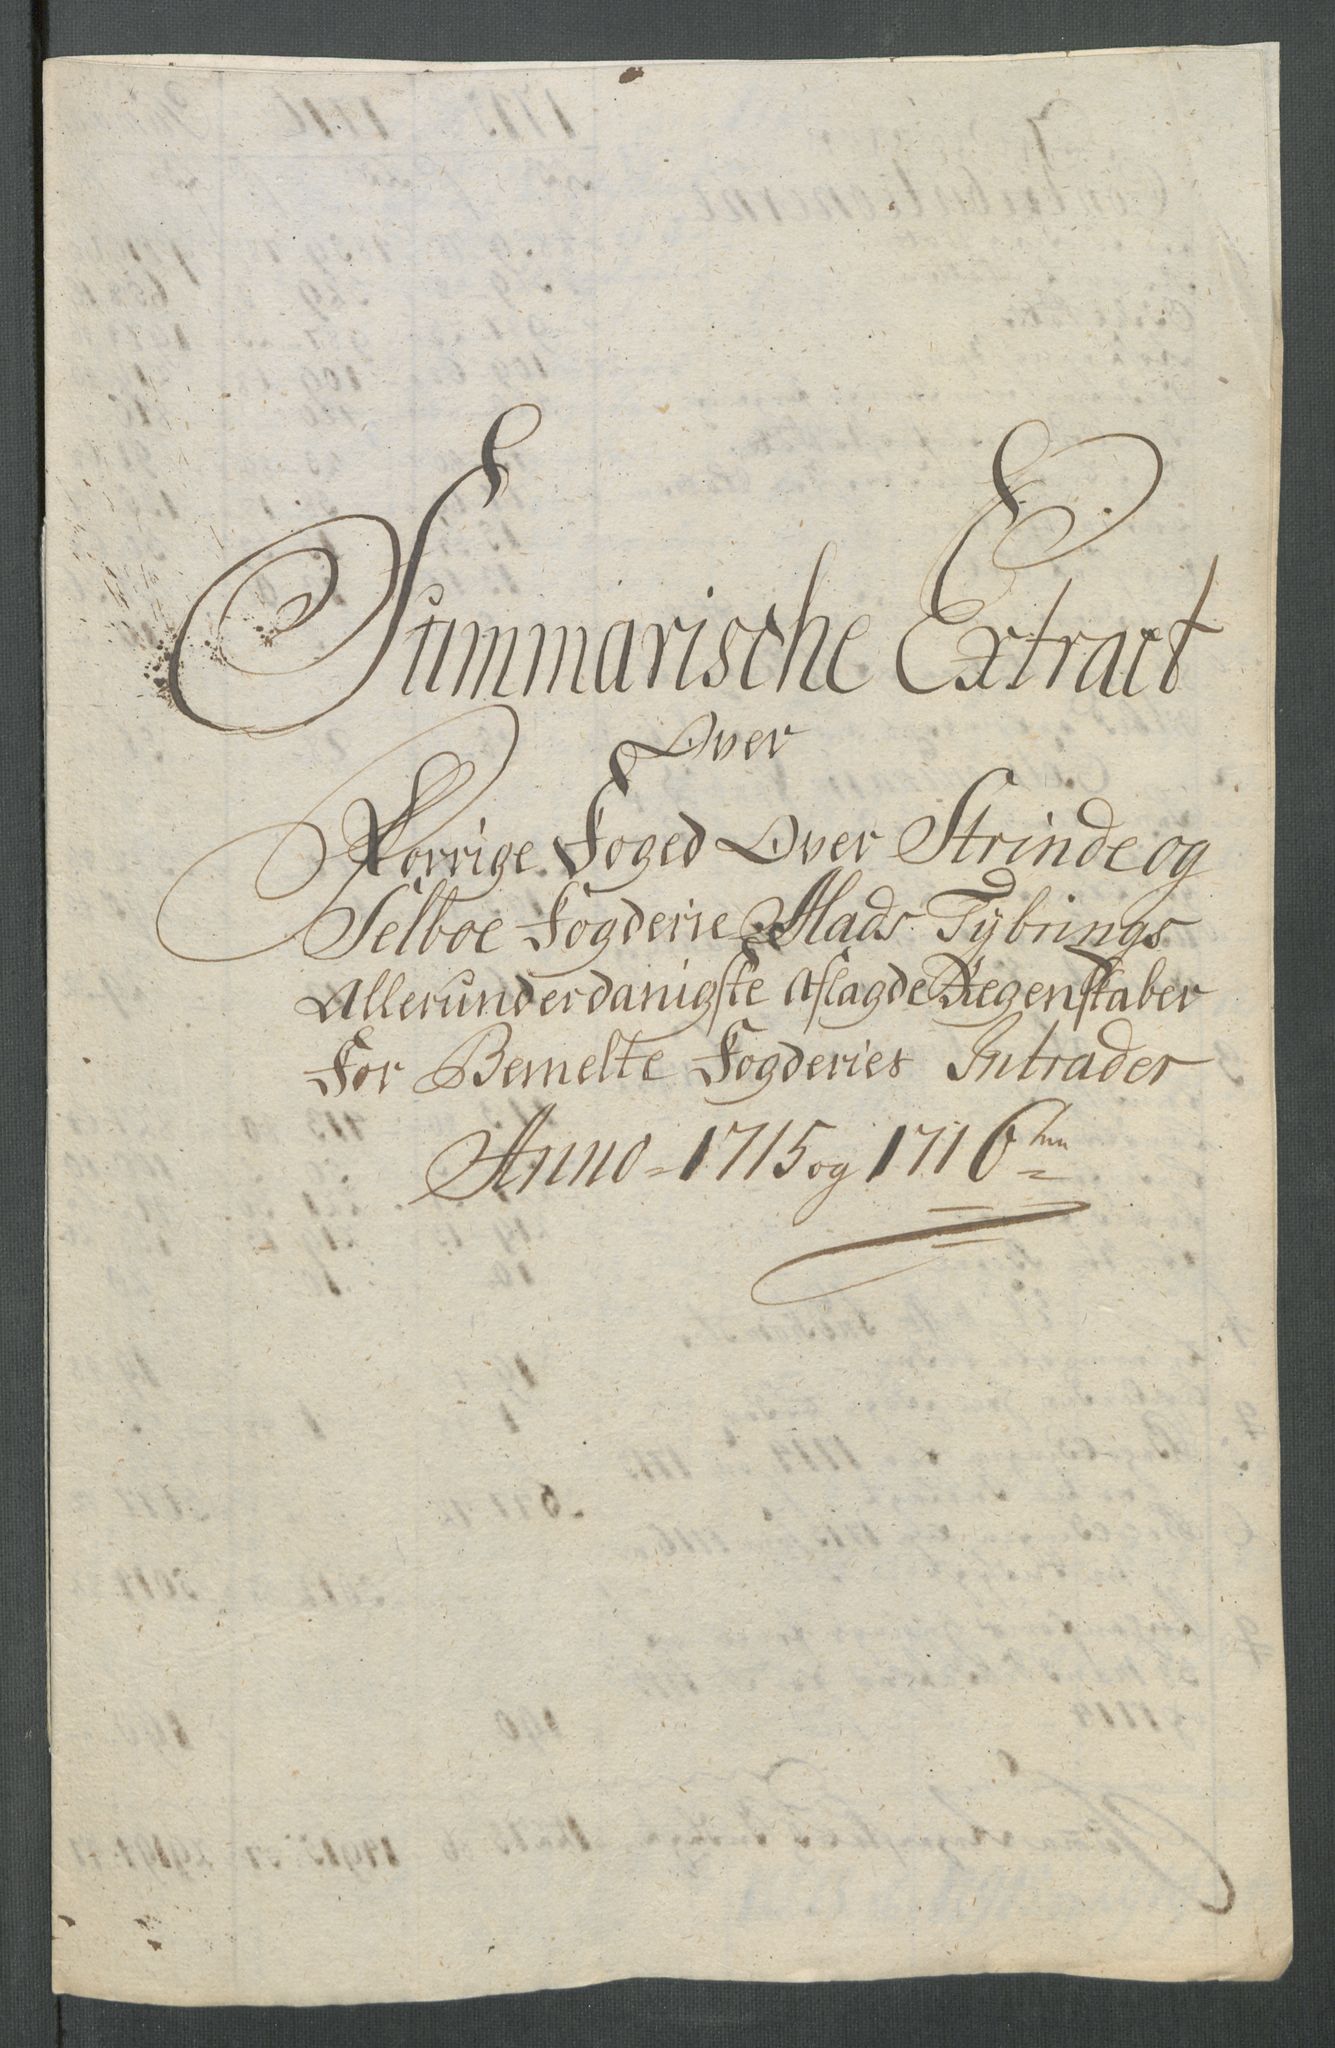 Summarische Extract
Over
Forrige Foged Over Strinde og
Selboe Fogderie Mads Tybrings
Allerunderdanigste Aflagde Regenskaber
For Bemelte Fogderies Intrader
Anno 1715 og 1716